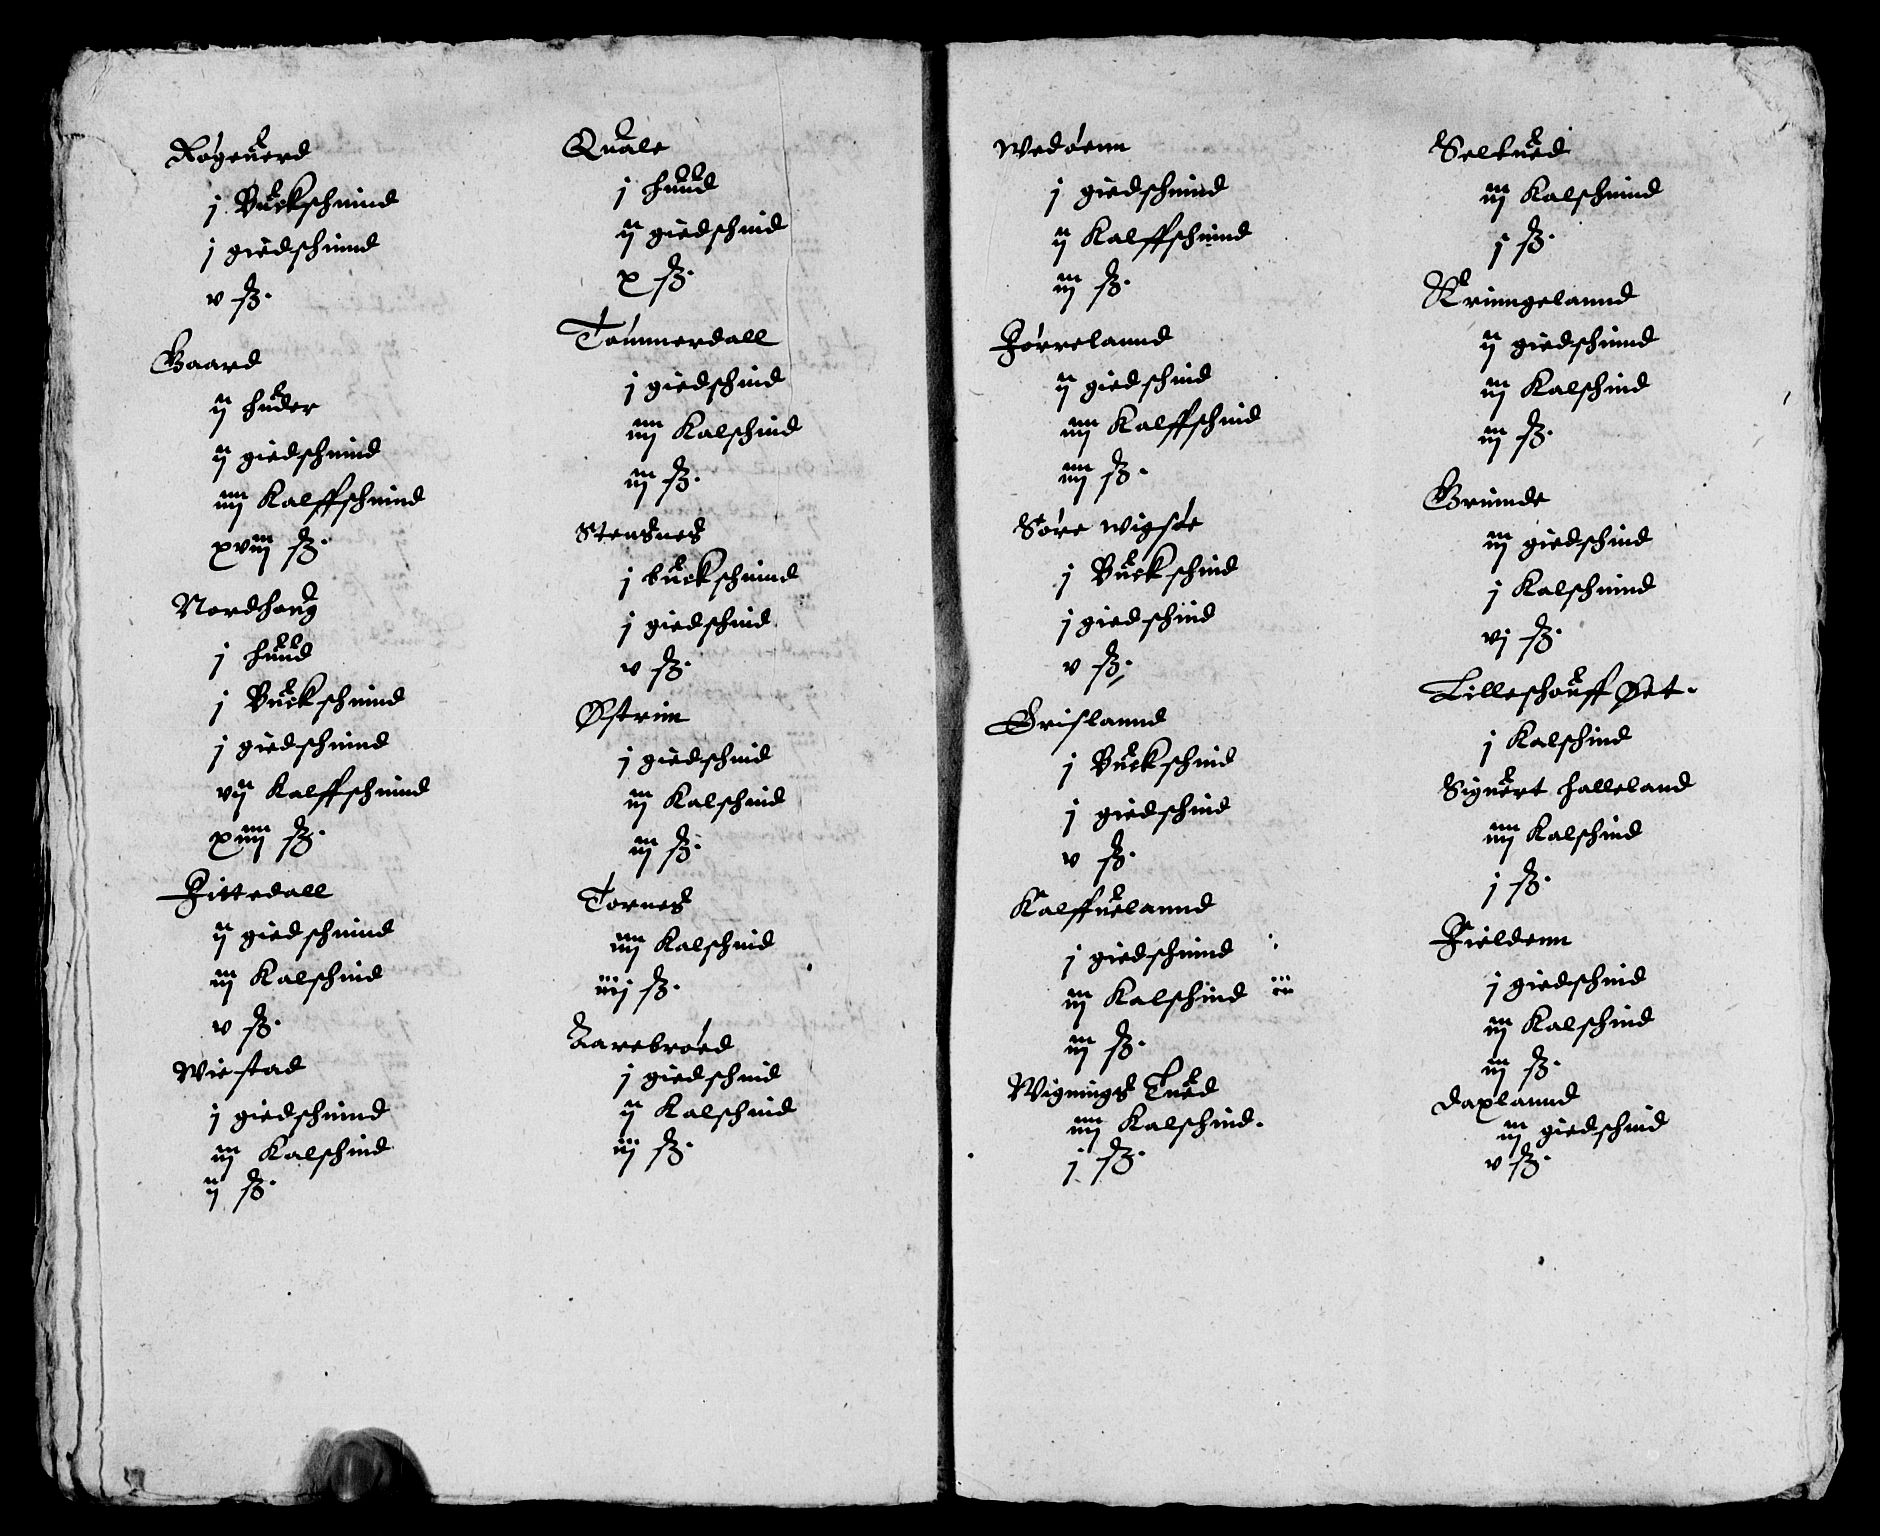 Røgeuerd
j Buckschinnd
j giedschinnd
v ß.
Gaard
ij huder
ij giedschinnd
iiij Kalffschinnd
xviij ß.
Nordhoug
j huud
j Buckschinnd
j giedschinnd
vij Kalffschinnd
xiiij ß.
Fittedall
ij giedschinnd
iij Kalschind
v ß.
Wiestad
j giedschinnd
iij Kalschind
ij ß.
Quale
j huud
ij giedschind
x ß.
Tømmerdall
j giedschind
iiij Kalschind
iij ß.
Stensnes
j buckschinnd
j giedschind
v ß.
Østrim
j giedschind
iij Kalschind
iij ß.
Tornes
iiij Kalschind
iiij ß.
Aarebrøed
j giedschind
ij Kalschind
iij ß.
Wedøenn
j giedschinnd
ij Kalffschinnd
iij ß.
Førrelannd
ij giedschind
iiij Kalffschind
iiij ß.
Søre wigsøe
j Buckschind
j giedschind
v ß.
Grislannd
j Buckschind
j giedschind
v ß.
Kalffuelannd
j giedschinnd
iij Kalschind
iij ß.
Wignings Tued
iiij Kalschind.
j ß.
Seltued
iij Kalschinnd
j ß.
Kringelannd
ij giedschinnd
iij Kalschind
iij ß.
Brunde
iij giedschind
j Kalschinnd
vj ß.
Lilleshouff Øet.
j Kalschind
Siguert halleland
iiij Kalschind
j ß.
Fieldenn
j giedschind
iij Kalschind
iij ß.
Daxlannd
iij giedschind
v ß.